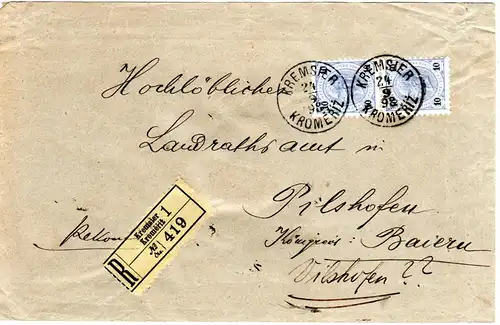 KREMSIER
24
98
KROMĚŘIZ
KREMSIER
24
9
98
KROMĚŘIZ
10
10
Hochlöbliches
Landrathsamt in
Pilshofen
Königreich: Baiern
Vilshofen ??
Rekom
R
Kremsier 1
Kroměříž
№ 419